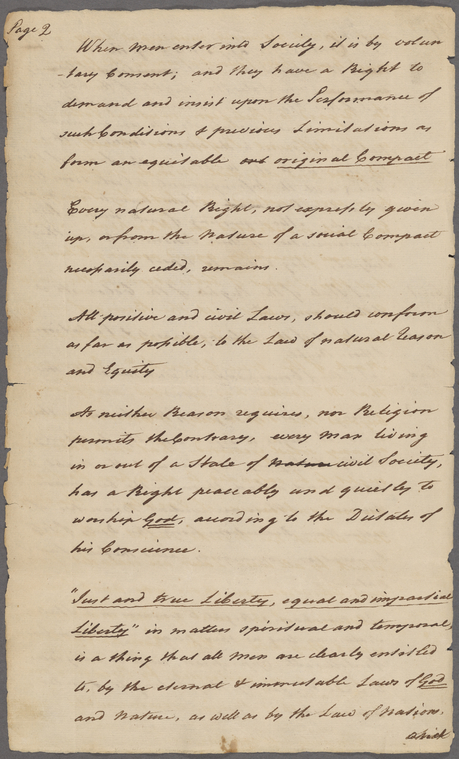 Page 2
When Men enter into Society, it is by volun
-tary Consent; and they have a Right to
demand and insist upon the Performance of
such Conditions & previous Limitations as
form an equitable original Compact
Every natural Right, not expressly given
up, or from the nature of a social Compact
necessarily ceded, remains.
All positive and civil Laws, should conform
as far as possible, to the Law of natural Reason
and Equity
As neither Reason requires, nor Religion
permits the Contrary, every Man living
in or out of a State of nature civil Society,
has a Right peaceably and quietly to
worship God, according to the Dictates of
his Conscience.
"Just and true Liberty, equal and impartial
Liberty" in matters spiritual and temporal,
is a thing that all Men are clearly entitled
to, by the eternal & immutable Laws of God
and nature, as well as by the Law of Nations.
which